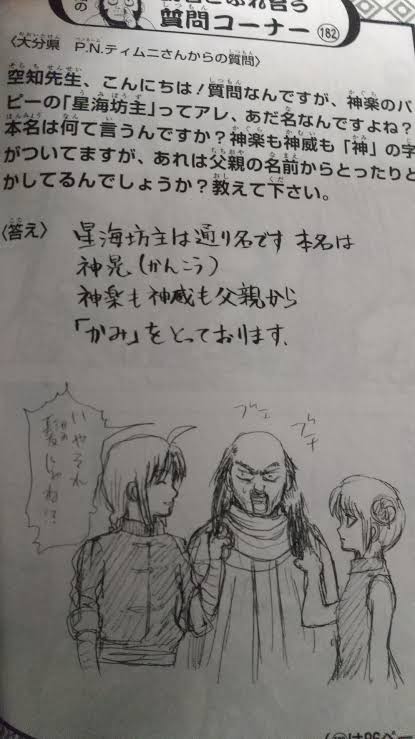 質問コーナー 182
〈大分県 P.N.ティムニさんからの質問〉
空知先生、こんにちは!質問なんですが、神楽のパ
ピーの「星海坊主」ってアレ、あだ名なんですよね?
本名は何て言うんですか?神楽も神威も「神」の字
がついてますが、あれは父親の名前からとったりと
かしてるんでしょうか?教えて下さい。
〈答え〉
星海坊主は通り名です 本名は
神晃(かんこう)
神楽も神威も父親から
「かみ」をとっております、
いやそれ
髪じゃね!?
ブチ
ブチ